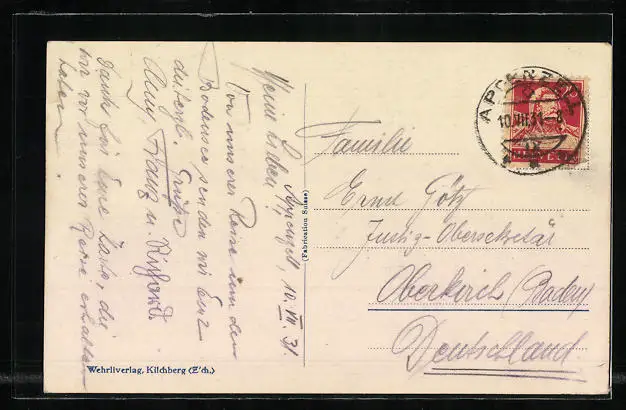 Appenzell, 10.VII.31.
Meine Lieben!
Von unserer Reise um den
Bodensee senden wir Euch
die herzl. Grüße
Anny, Franz u. Richard.
Dank für Eure Karte, die
wir vor unserer Reise erhalten
haben.
(Fabrication Suisse)
Wehrliverlag, Kilchberg (Z'ch.)
APPENZELL
10.VII.31.-8
Familie
Ernst Götz
Justiz-Obersekretär
Oberkirch (Baden)
Deutschland.